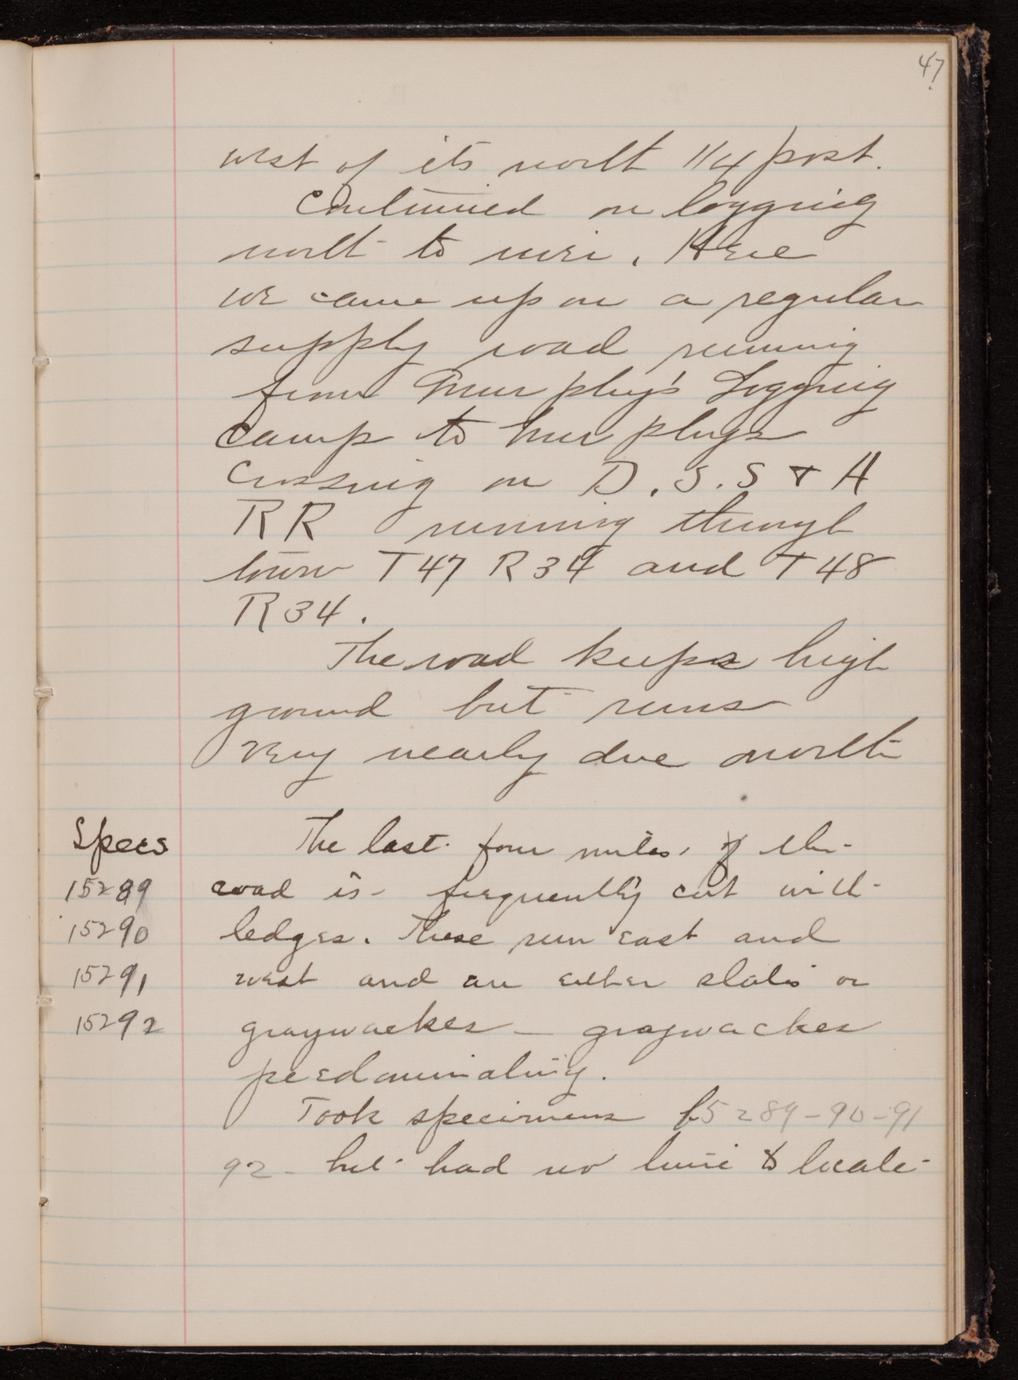 47
west of its north 1/4 post.
Continued on logging
north to mine. Here
we came upon a regular
supply road running
from Murphy's Logging
Camp to Murphys
Crossing on D.S.S & A
RR running through
town T47 R34 and T48
R34.
The road keeps high
ground but runs
very nearly due north
Specs
The last four miles, of the
15289
road is frequently cut with
15290
ledges. These run east and
15291
west and are either slates or
15292
graywackes — graywackes
predominating.
Took specimens 15289-90-91
92 - but had no time to locate